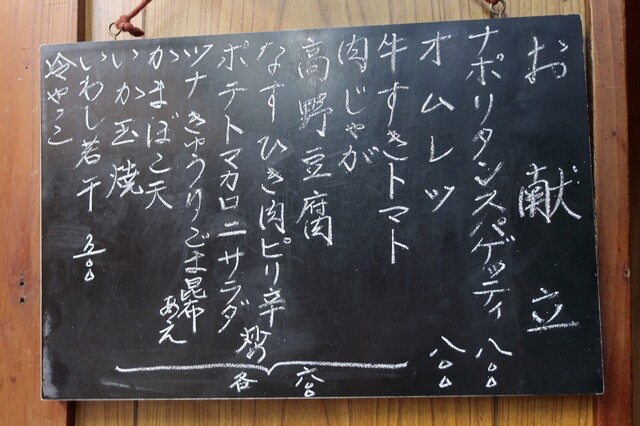 お献立
ナポリタンスパゲッティ 八〇〇
オムレツ 八〇〇
牛すきトマト
肉じゃが
高野豆腐
なすひき肉ピリ辛炒
ポテトマカロニサラダ
ツナきゅうりごま昆布あえ
かまぼこ天
いか玉焼
各 六〇〇
いわし若干 五〇〇
冷やっこ